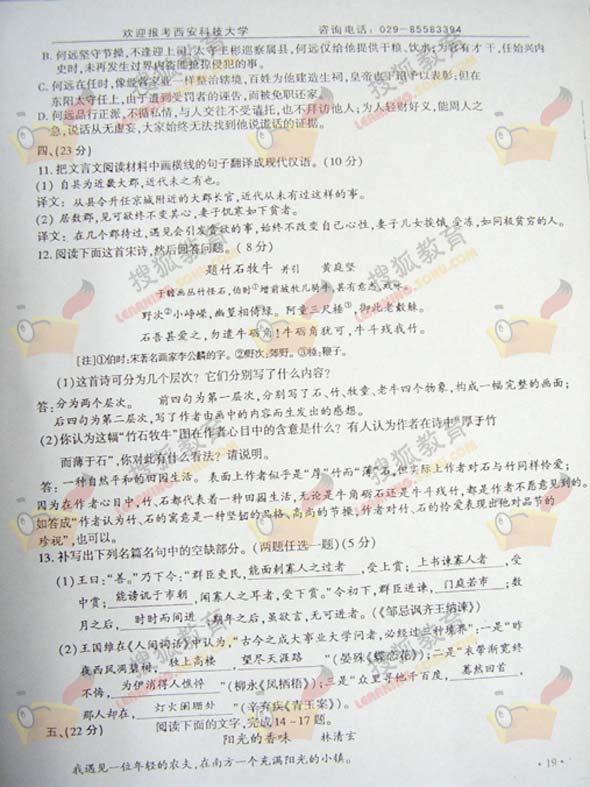 欢迎报考西安科技大学 咨询电话：029-85583394
B. 何远坚守节操，不逢迎上司；太守王彬巡察属县，何远仅给他提供干粮、饮水；为官有才干，任始兴内
史时，未再发生过界内盗匪抢掠侵犯的事。
C. 何远在任时，像经营家业一样整治辖境，百姓为他建造生祠，皇帝也下诏予以表彰；但在
东阳太守任上，由于遭到受罚者的诬告，而被免职还家。
D. 何远品行正派，不徇私情，与人交往不受请托，也不拜访他人；为人轻财好义，能周人之
急，说话从无虚妄，大家始终无法找到他说谎话的证据。
四、(23分)
11. 把文言文阅读材料中画横线的句子翻译成现代汉语。(10分)
(1) 自县为近畿大郡，近代未之有也。
译文：从县令升任京城附近的大郡长官，近代从未有过这样的事。
(2) 居数郡，见可欲终不变其心，妻子饥寒如下贫者。
译文：在几个郡待过，遇见会引发贪欲的事，始终不改变自己心性，妻子儿女挨饿受冻，如同极贫穷的人。
12. 阅读下面这首宋诗，然后回答问题。(8分)
题竹石牧牛 并引 黄庭坚
子瞻画丛竹怪石，伯时①增前坡牧儿骑牛，甚有意态，戏咏。
野次②小峥嵘，幽篁相倚绿。阿童三尺棰③，御此老觳觫。
石吾甚爱之，勿遣牛砺角！牛砺角犹可，牛斗残我竹。
[注]①伯时：宋著名画家李公麟的字。②野次：郊野。③棰：鞭子。
(1)这首诗可分为几个层次？它们分别写了什么内容？
答：分为两个层次。 前四句为第一层次，分别写了石、竹、牧童、老牛四个物象，构成一幅完整的画面；
后四句为第二层次，写了作者由画中的内容而生发出的感想。
(2)你认为这幅“竹石牧牛”图在作者心目中的含意是什么？有人认为作者在诗中“厚于竹
而薄于石”，你对此有什么看法？请说明。
答：一种自然平和的田园生活。 表面上作者似乎是“厚”竹而“薄”石，但实际上作者对石与竹同样怜爱；
因为在作者心目中，竹、石都代表着一种田园生活，无论是牛角砺石还是牛斗残竹，都是作者不愿意见到的。
如答成“作者认为竹、石的寓意是一种坚韧的品格、高尚的节操，作者对竹、石的怜爱表现出他对品节的
珍视”，也可以。
13. 补写出下列名篇名句中的空缺部分。(两题任选一题)(5分)
(1)王曰：“善。”乃下令：“群臣吏民，能面刺寡人之过者，受上赏；上书谏寡人者，受
中赏；能谤讥于市朝，闻寡人之耳者，受下赏。”令初下，群臣进谏，门庭若市；数
月之后，时时而间进；期年之后，虽欲言，无可进者。(《邹忌讽齐王纳谏》)
(2)王国维在《人间词话》中认为，“古今之成大事业大学问者，必经过三种境界”：一是“昨
夜西风凋碧树，独上高楼，望尽天涯路”(晏殊《蝶恋花》)；二是“衣带渐宽终
不悔，为伊消得人憔悴”(柳永《凤栖梧》)；三是“众里寻他千百度，蓦然回首，
那人却在，灯火阑珊处”(辛弃疾《青玉案》)。
五、(22分) 阅读下面的文字，完成14-17题。
阳光的香味 林清玄
我遇见一位年轻的农夫，在南方一个充满阳光的小镇。
·19·
搜狐教育
LEARNING.SOHU.COM